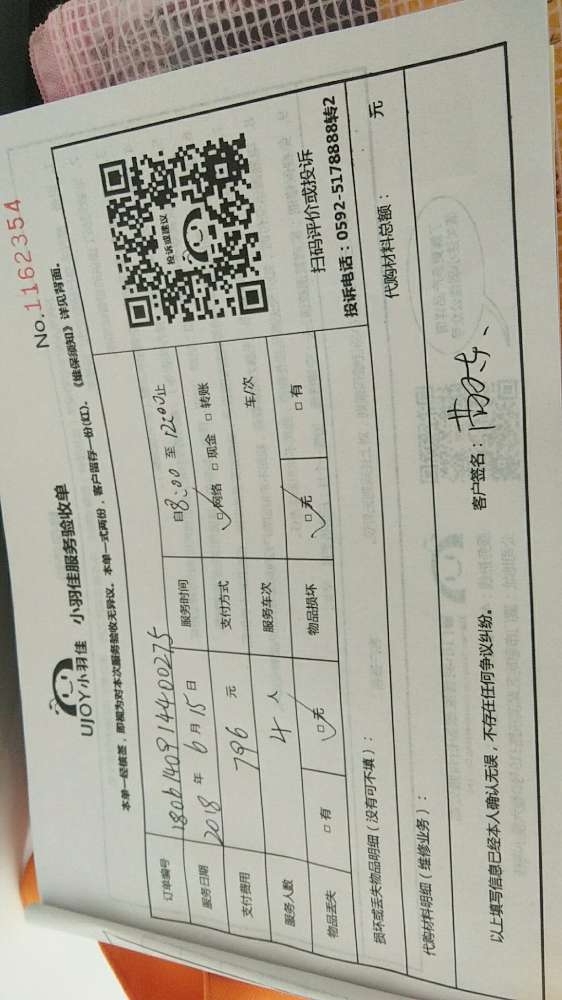 No.1162354
UJOY小羽佳 小羽佳服务验收单
本单一经核签，即视为对本次服务验收无异议。本单一式两份，客户留存一份(红)。《维保须知》详见背面。
订单编号 1806140914400275
服务日期 2018 年 6 月 15 日 服务时间 自8:00 至 12:00止
支付费用 796 元 支付方式 网络 现金 转账
服务人数 4 人 服务车次 车/次
物品丢失 有 无 物品损坏 无 有
投诉或建议
扫码评价或投诉
投诉电话：0592-5178888转2
损坏或丢失物品明细（没有可不填）：
代购材料明细（维修业务）： 代购材料总额： 元
以上填写信息已经本人确认无误，不存在任何争议纠纷。 客户签名：